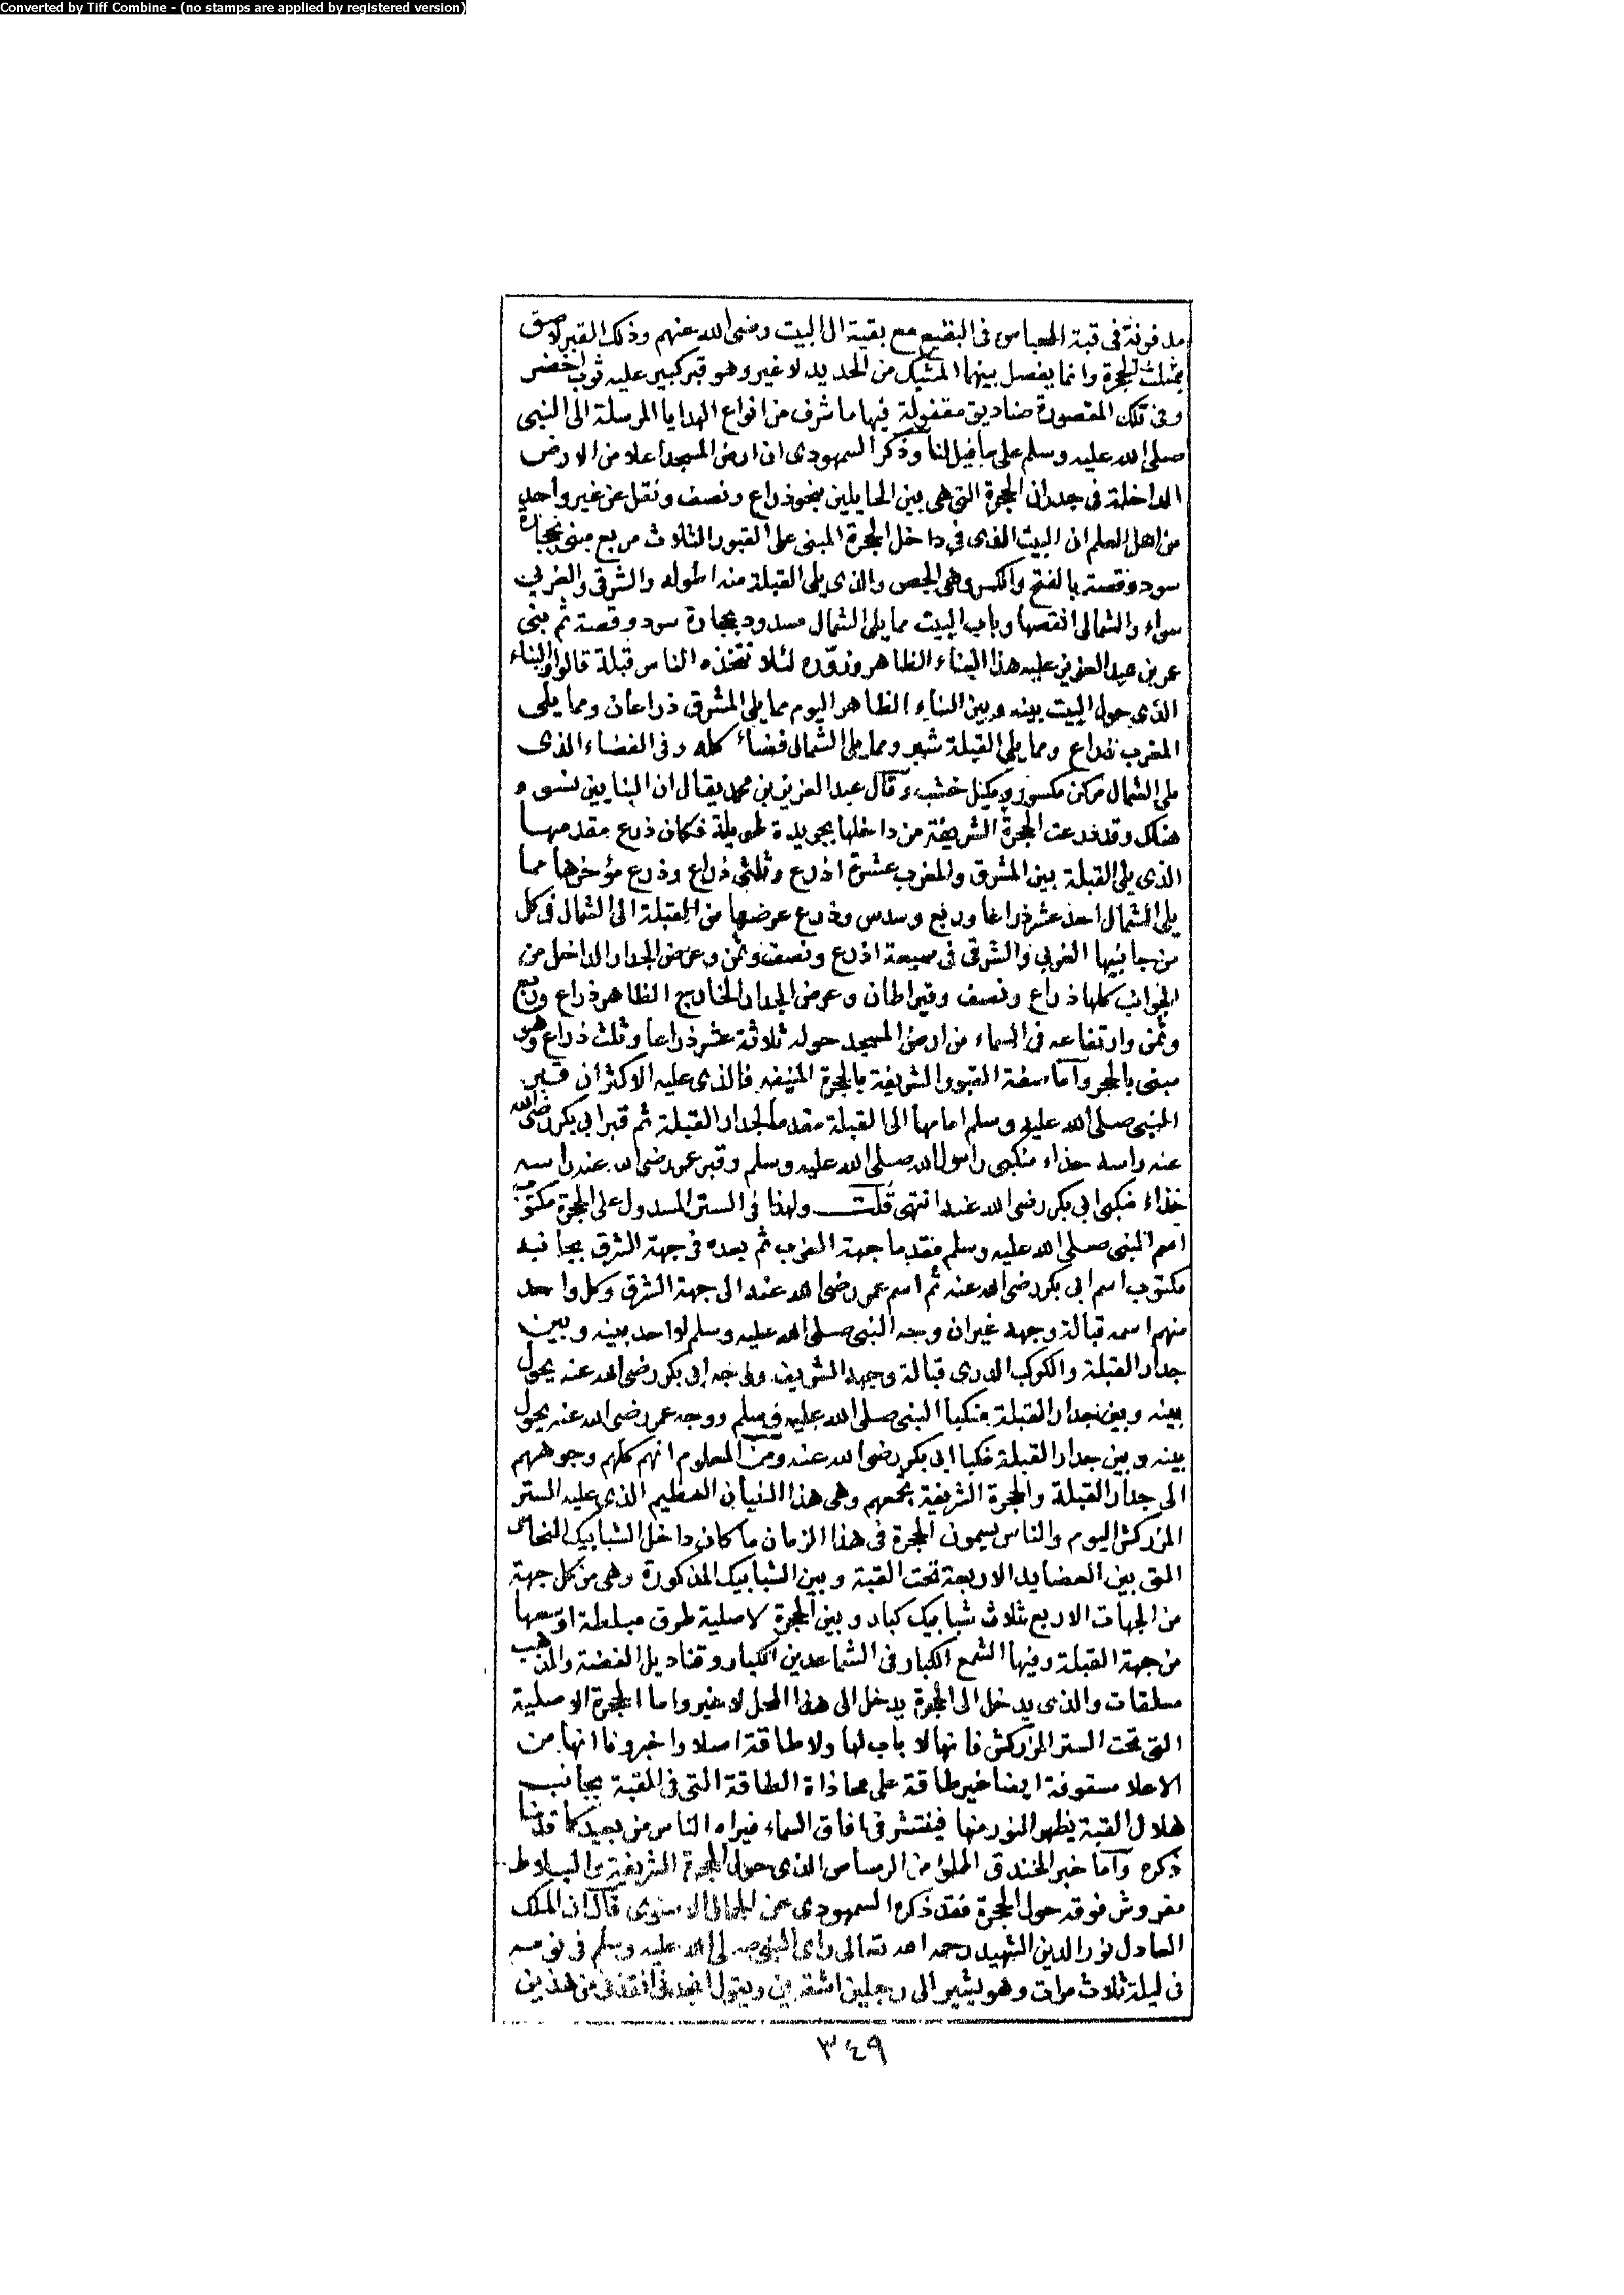 Converted by Tiff Combine - (no stamps are applied by registered version)
مدفونة فى قبة العباس فى البقيع مع بقية ال البيت رضى الله عنهم وذلك القبر لاصق
بمثلث الحجرة وانما يفصل بينهما المشبك من الحديد لا غير وهو قبر كبير عليه ثوب اخضر
وفى تلك المقصورة صناديق مقفولة فيها ما شرف من انواع الهدايا المرسلة الى النبى
صلى الله عليه وسلم على ما قيل لنا وذكر السمهودى ان ارض المسجد اعلا من الارض
الداخلة فى جدران الحجرة التى هى بين الحايلين بنحو ذراع ونصف ونقل عن غير واحد
من اهل العلم ان البيت الذى فى داخل الحجرة المبنى على القبور الثلاث مربع مبنى بحجارة
سود وقصة بالفتح والكسر وهى الجص والذى يلى القبلة منه اطوله والشرقى والغربى
سواء والشمالى انقصها وباب البيت مما يلى الشمال مسدود بحجارة سود وقصة ثم بنى
عمر بن عبد العزيز عليه هذا البناء الظاهر وزوّره لئلا تتخذه الناس قبلة قالوا والبناء
الذى حول البيت بينه وبين البناء الظاهر اليوم مما يلى المشرق ذراعان ومما يلى
المغرب ذراع ومما يلى القبلة شبر ومما يلى الشمال فضاء كله وفى الفضاء الذى
يلى الشمال مركن مكسور ومكيل خشب وقال عبد العزيز بن محمد يقال ان البنايين نسوه
هناك وقد ذرعت الحجرة الشريفة من داخلها بجريدة طويلة فكان ذرع مقدمها
الذى يلى القبلة بين المشرق والمغرب عشرة اذرع وثلثى ذراع وذرع مؤخرها مما
يلى الشمال احد عشر ذراعا وربع وسدس وذرع عرضها من القبلة الى الشمال فى كل
من جانبيها الغربى والشرقى فى سبعة اذرع ونصف وثمن وعرض الجدار الداخل من
الجوانب كلها ذراع ونصف وقيراطان وعرض الجدار الخارج الظاهر ذراع وربع
وثمن وارتفاعه فى السماء من ارض المسجد حوله ثلاثة عشر ذراعا وثلث ذراع وهو
مبنى بالحجر واما صفة القبور الشريفة بالحجرة المنيفه فالذى عليه الاكثر ان قبر
النبى صلى الله عليه وسلم امامها الى القبلة مقدما لجدار القبلة ثم قبر ابى بكر رضى الله
عنه راسه حذاء منكبى رسول الله صلى الله عليه وسلم وقبر عمر رضى الله عنه راسه
حذاء منكبى ابى بكر رضى الله عنه انتهى قلت ولهذا فى الستر المسدول على الحجرة مكتوب
اسم النبى صلى الله عليه وسلم مقدما جهة الغرب ثم بعده فى جهة الشرق بجانبه
مكتوب اسم ابى بكر رضى الله عنه ثم اسم عمر رضى الله عنه الى جهة الشرق وكل واحد
منهم اسمه قبالة وجهه غير ان وجه النبى صلى الله عليه وسلم لواحد بينه وبين
جدار القبلة والكوكب الدرى قبالة وجهه الشريف ووجه ابى بكر رضى الله عنه يحول
بينه وبين جدار القبلة منكبا النبى صلى الله عليه وسلم ووجه عمر رضى الله عنه يحول
بينه وبين جدار القبلة منكبا ابى بكر رضى الله عنه ومن المعلوم انهم كلهم وجوههم
الى جدار القبلة والحجرة الشريفة تجمعهم وهى هذا البنيان العظيم الذى عليه الستر
المزركش اليوم والناس يسمون الحجرة فى هذا الزمان ما كان داخل الشبابيك النحاس
التى بين العضايد الاربعة تحت القبة وبين الشبابيك المذكورة وهى من كل جهة
من الجهات الاربع ثلاث شبابيك كبار وبين الحجرة لاصلية طرق مبلطة اوسعها
من جهة القبلة وفيها الشمع الكبار فى الشماعدين الكبار وقناديل الفضة والذهب
معلقات والذى يدخل الى الحجرة يدخل الى هذا المحل لا غير واما الحجرة الاصلية
التى تحت الستر المزركش فانها لا باب لها ولا طاقة اصلا واخبرونا انها من
الاعلا مسقوفة ايضا غير طاقة على محاذاة الطاقة التى فى القبة بجانب
هلال القبة يظهر النور منها فينتشر فى افاق السماء فيراه الناس من بعيد كما قدمنا
ذكره واما خبر الخندق المملؤ من الرصاص الذى حول الحجرة الشريفة والبلاط
مفروش فوقه حول الحجرة فقد ذكره السمهودى عن الجمال الاسنوى قال ان الملك
العادل نور الدين الشهيد رحمه الله تعالى راى النبى صلى الله عليه وسلم فى نومه
فى ليلة ثلاث مرات وهو يشير الى رجلين اشقرين ويقول انجدنى انقذنى من هذين
٣٤٩